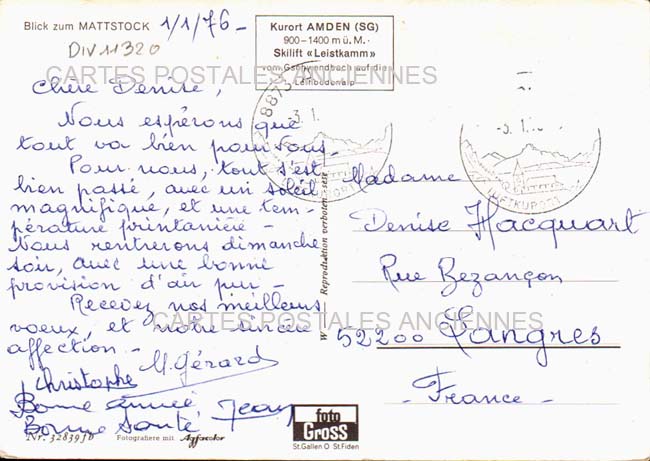 Blick zum MATTSTOCK
1/1/76 -
DIV 11320
Kurort AMDEN (SG)
900–1400 m ü. M. ·
Skilift «Leistkamm»
vom Gschwendbach auf die
Leibödenalp
CARTES POSTALES ANCIENNES
8873
3.1.
-3.1.
Chère Denise,
Nous espérons que
tout va bien pour vous.-
Pour nous, tout s'est
bien passé, avec un soleil
magnifique, et une tem-
pérature printanière -
Nous rentrerons dimanche
soir, avec une bonne
provision d'air pur -
Recevez nos meilleurs
voeux, et notre sincère
affection -
M. Gérard
Christophe
Bonne année, Jean
Bonne santé
Nr. 32839Jb
Fotografiere mit Agfacolor
W Reproduktion verboten
Madame
Denise Hacquart
Rue Bezançon
52200 Langres
- France -
CARTES POSTALES ANCIENNES
foto
GROSS
St. Gallen O St. Fiden